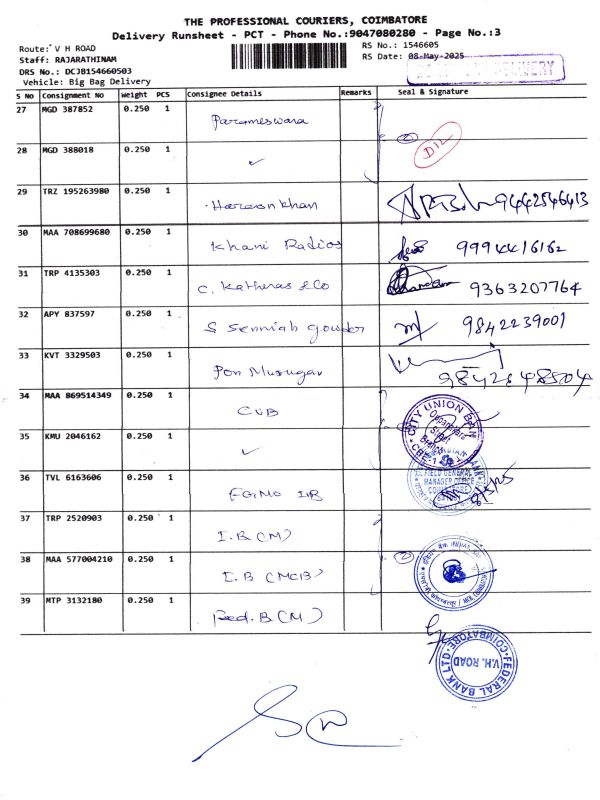 THE PROFESSIONAL COURIERS, COIMBATORE
Delivery Runsheet - PCT - Phone No.:9047080280 - Page No.:3
Route: V H ROAD
RS No.: 1546605
Staff: RAJARATHINAM
RS Date: 08-May-2025
DRS No.: DCJB154660503
DELIVERY
Vehicle: Big Bag Delivery
S No Consignment No Weight PCS Consignee Details Remarks Seal & Signature
27 MGD 387852 0.250 1 Parameswara
28 MGD 388018 0.250 1 ✓ 2 D12
29 TRZ 195263980 0.250 1 Haroon khan 9442546413
30 MAA 708699680 0.250 1 Khani Radios 9994416162
31 TRP 4135303 0.250 1 C. Katheras & Co 9363207764
32 APY 837597 0.250 1 S Senniah gowder 9842239001
33 KVT 3329503 0.250 1 Pon Murugan
34 MAA 869514349 0.250 1 CUB
CITY UNION BANK
35 KMU 2046162 0.250 1 ✓
36 TVL 6163606 0.250 1 FGMO IB
FIELD GENERAL
MANAGER OFFICE
8/5/25
37 TRP 2520903 0.250 1 I.B (M)
38 MAA 577004210 0.250 1 I.B (MCB) 2
39 MTP 3132180 0.250 1 Fed. B (M)
FEDERAL BANK LTD. COIMBATORE
V.H. ROAD